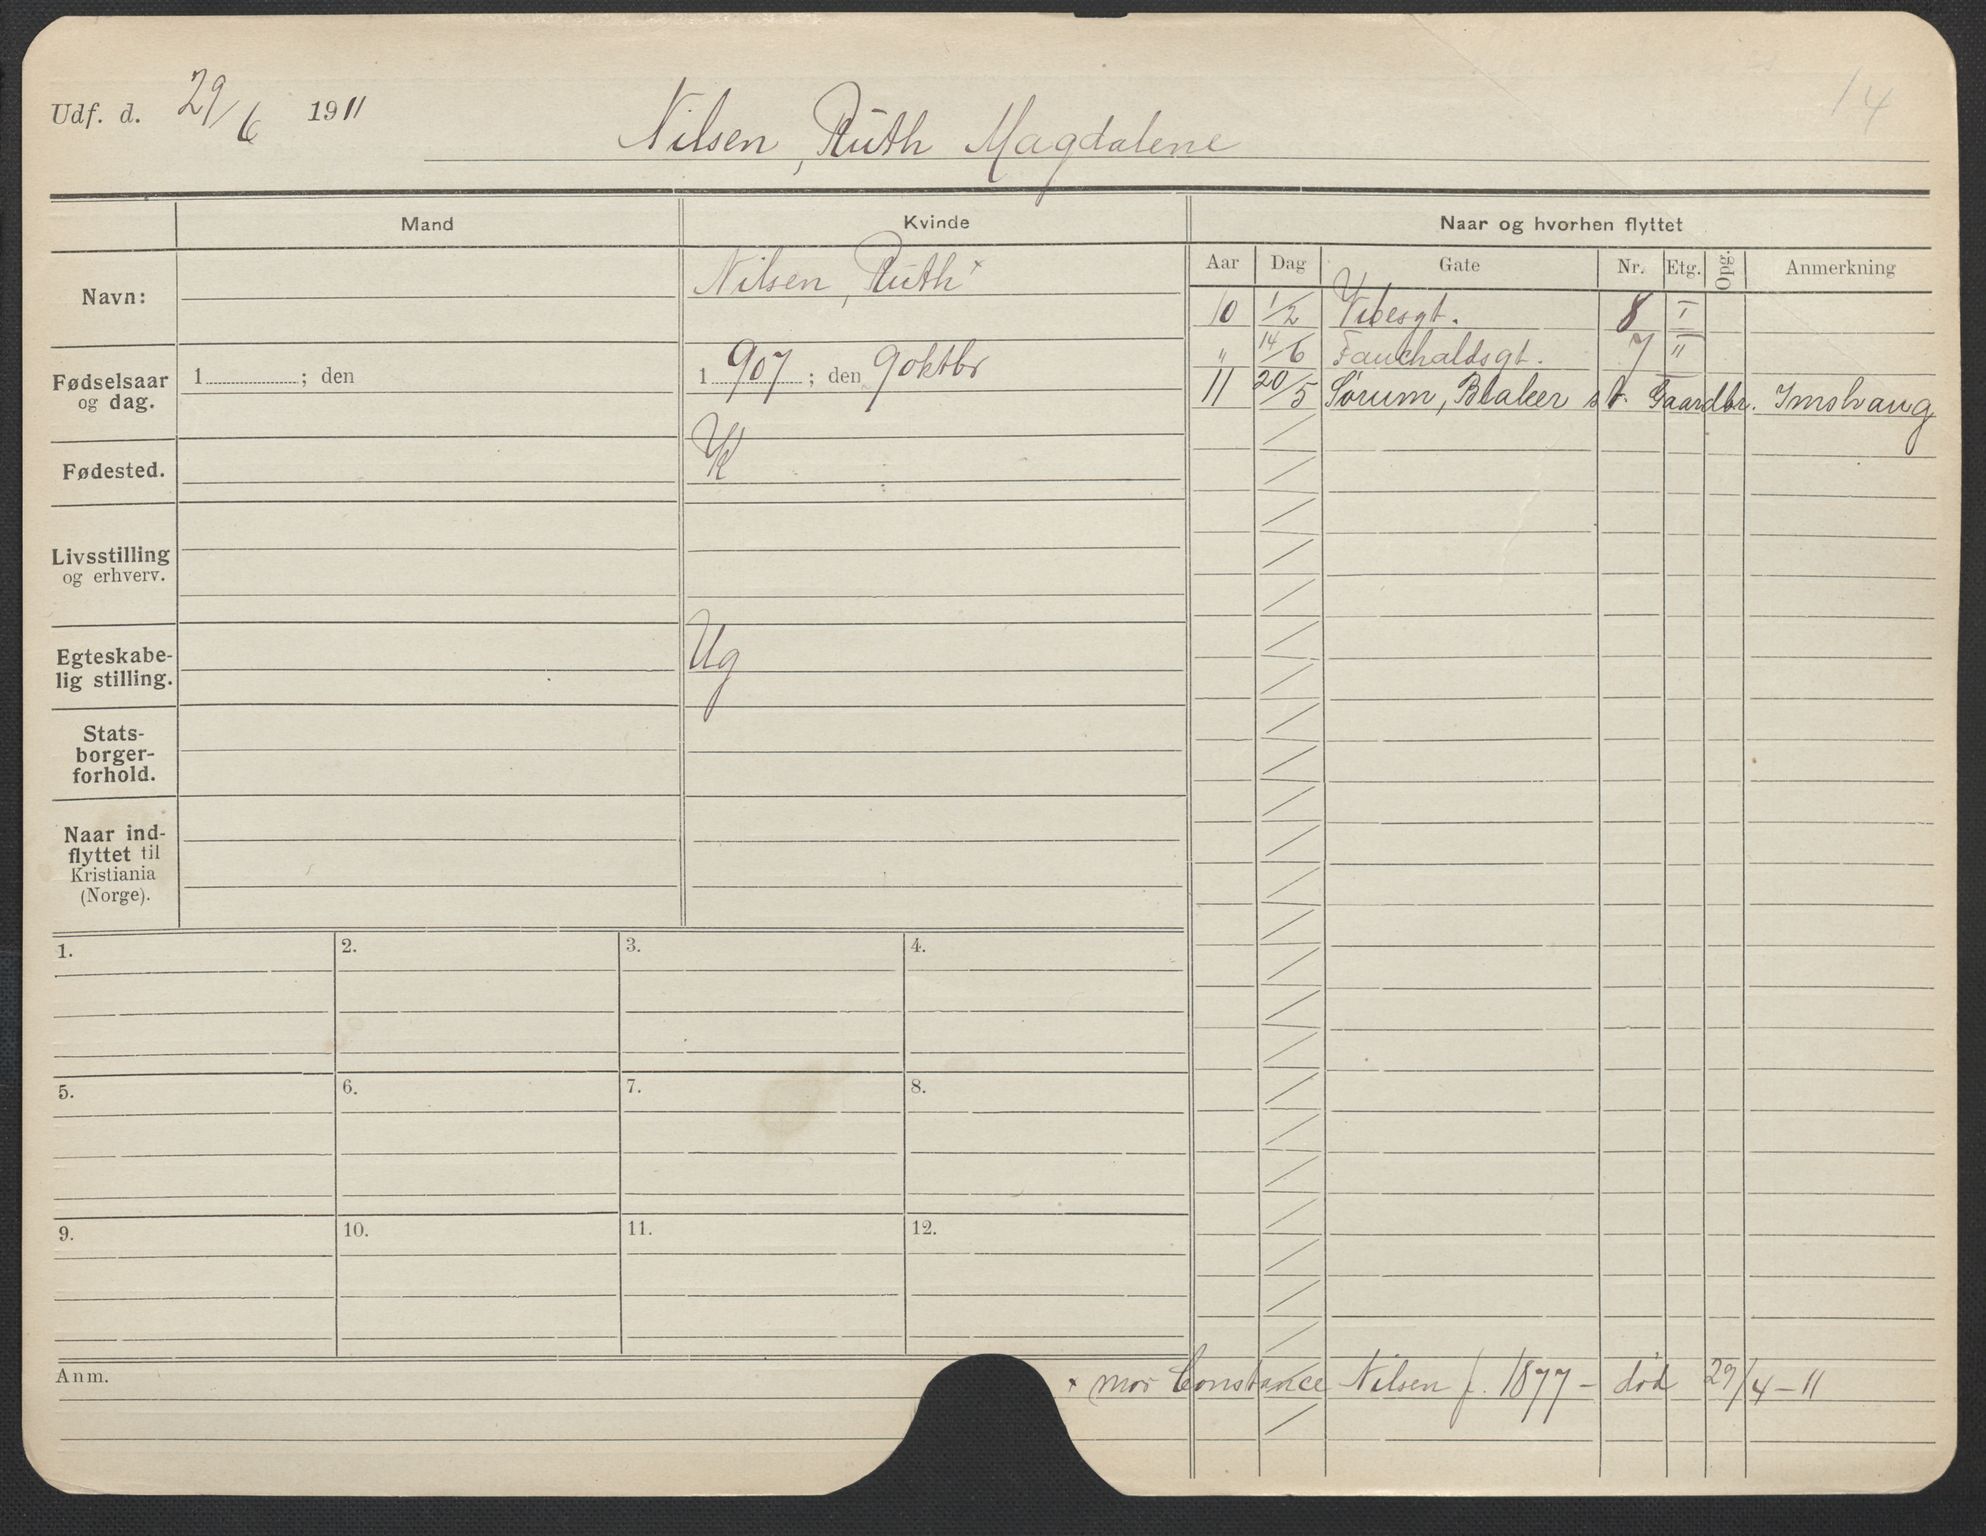 Udf. d. 29/6 1911
Nilsen, Ruth Magdalene
14
Mand
Kvinde
Naar og hvorhen flyttet
Navn:
Nilsen, Ruth ×
Fødselsaar og dag.
1 ; den
1 907 ; den 9 oktbr
Fødested.
K
Livsstilling og erhverv.
Egteskabe-
lig stilling.
Ug
Stats-
borger-
forhold.
Naar ind-
flyttet til
Kristiania
(Norge).
Aar Dag Gate Nr. Etg. Opg. Anmerkning
10 1/2 Vibesgt. 8 I
" 14/6 Fauchaldsgt. 7 II
11 20/5 Sørum, Blaker st. Gaardbr. Imshaug
1. 2. 3. 4.
5. 6. 7. 8.
9. 10. 11. 12.
Anm.
× mor Constance Nilsen f. 1877 - død 29/4 - 11